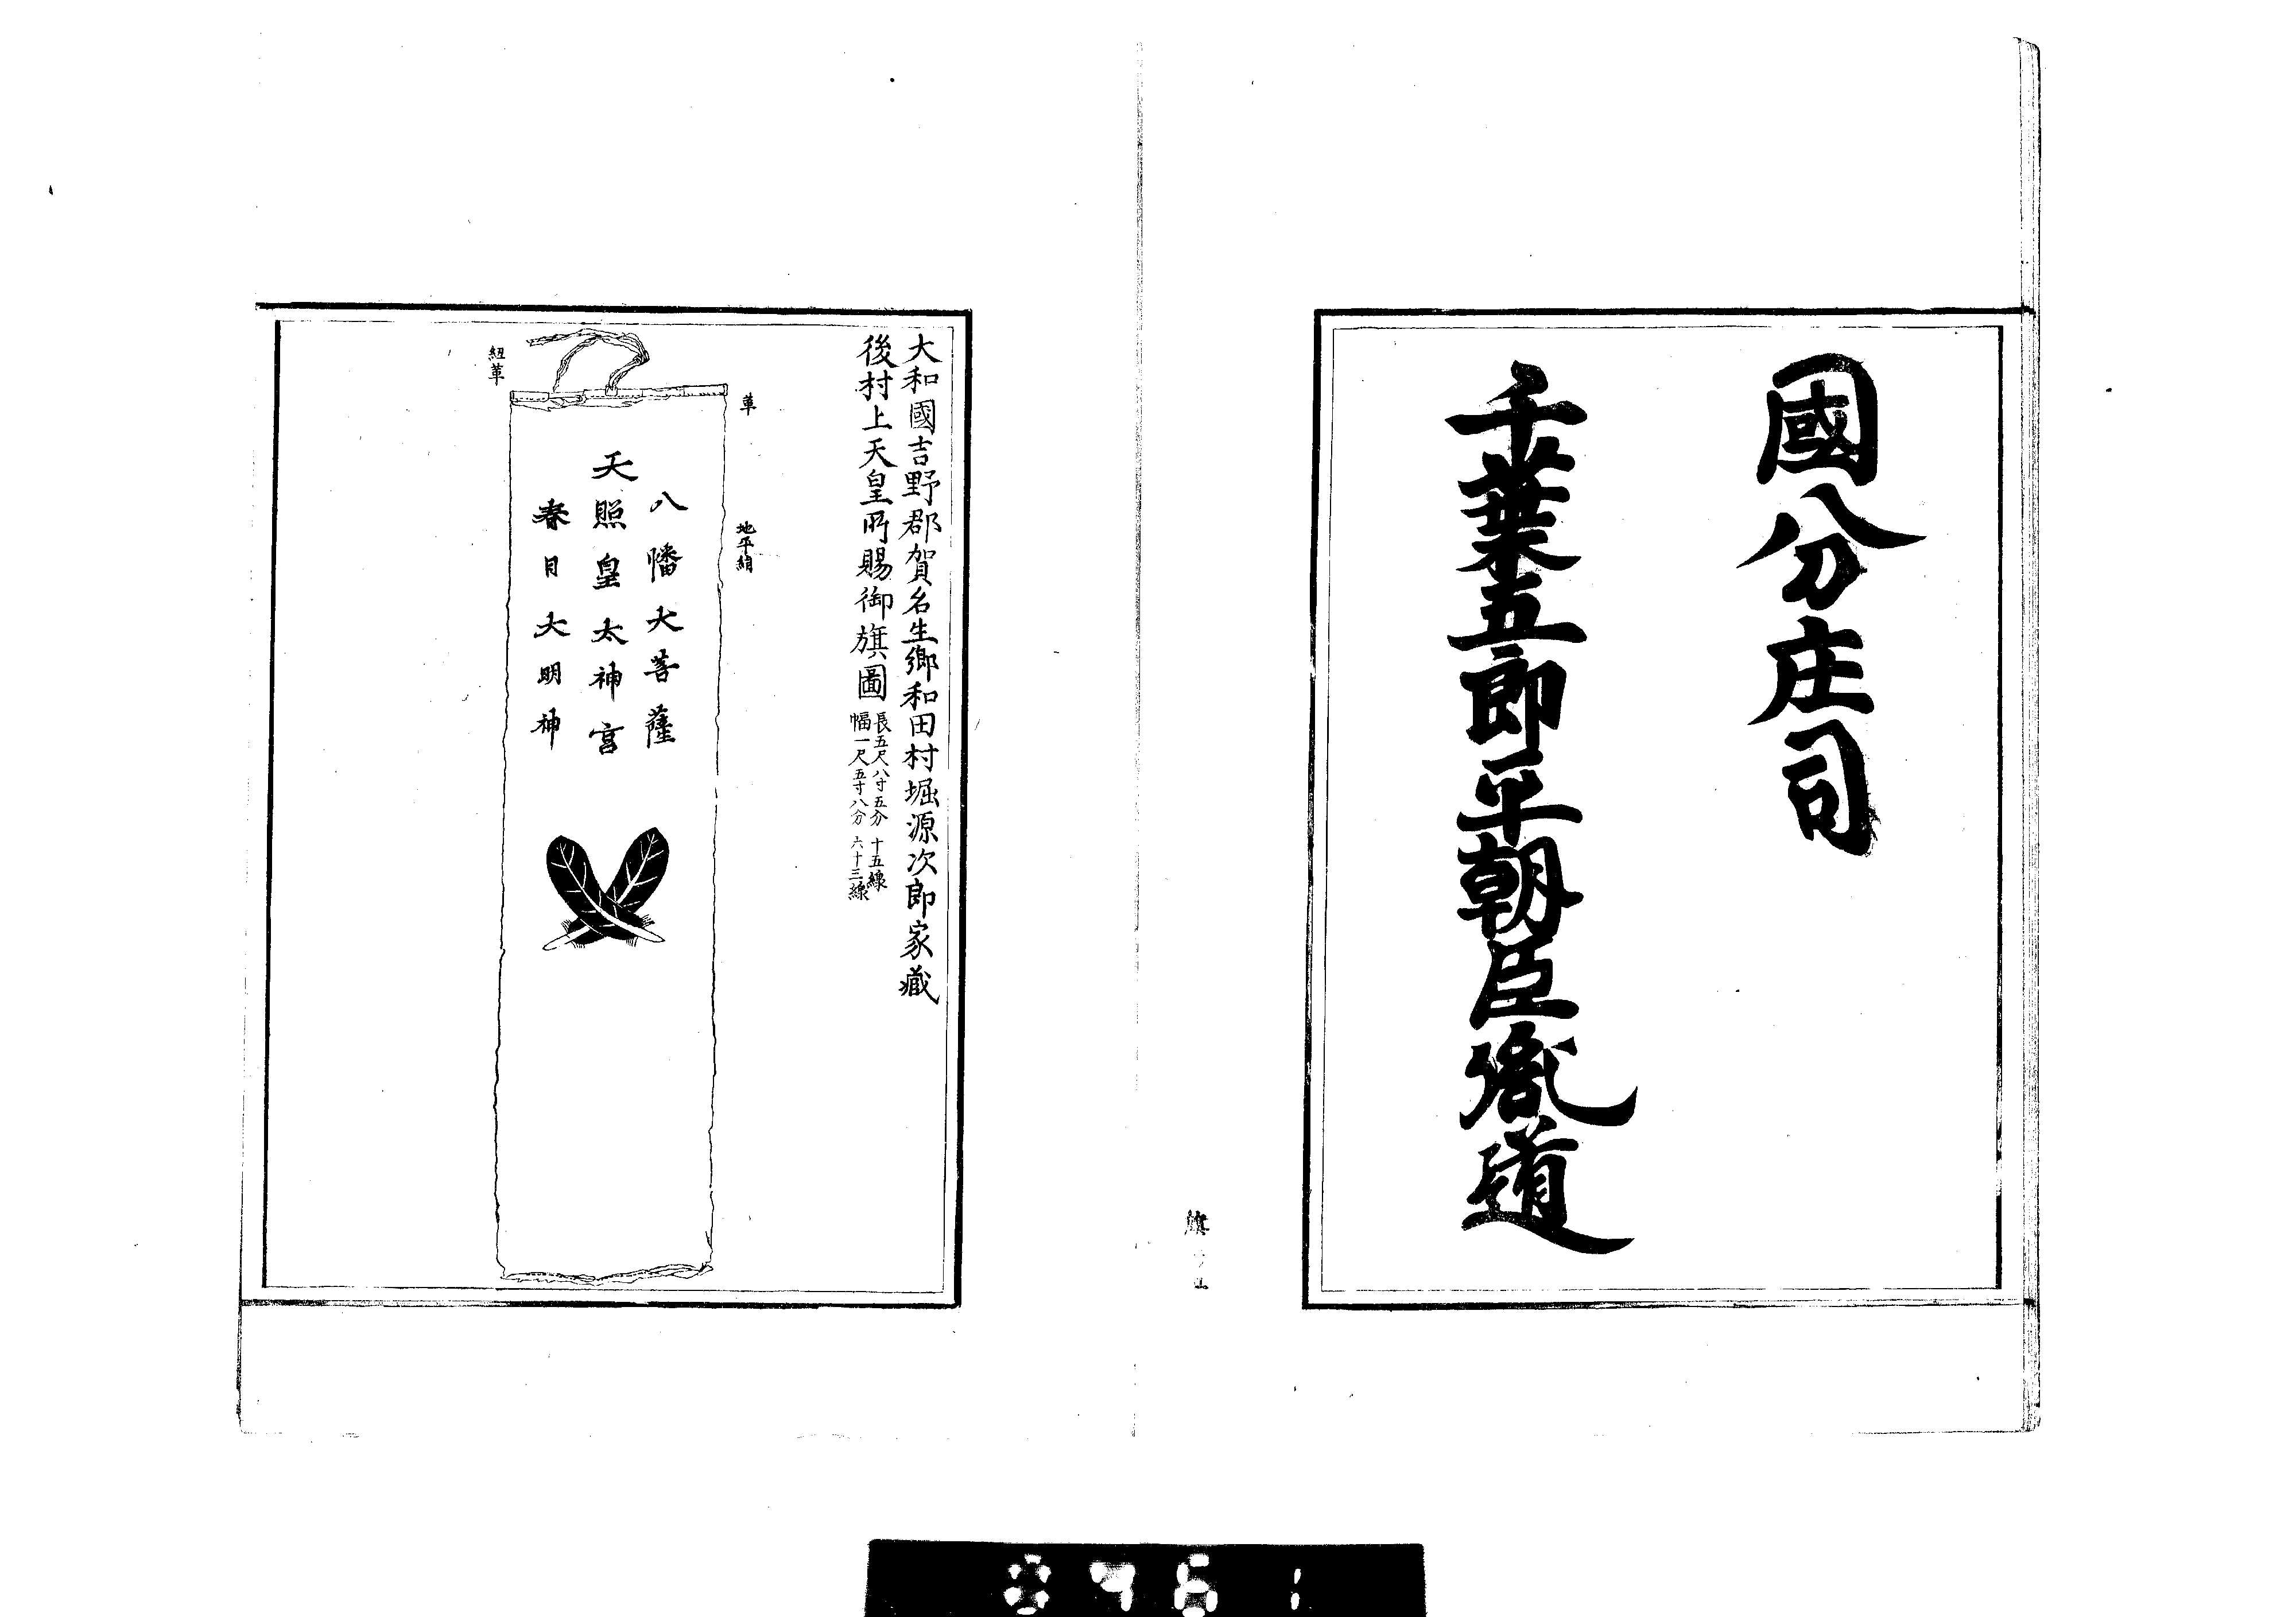 國分庄司
千葉五郎平朝臣胤道
旗
大和國吉野郡賀名生鄉和田村堀源次郎家藏
後村上天皇所賜御旗圖
長五尺八寸五分 十五線
幅一尺五寸八分 六十三線
革
地平絹
八幡大菩薩
天照皇太神宮
春日大明神
紐革